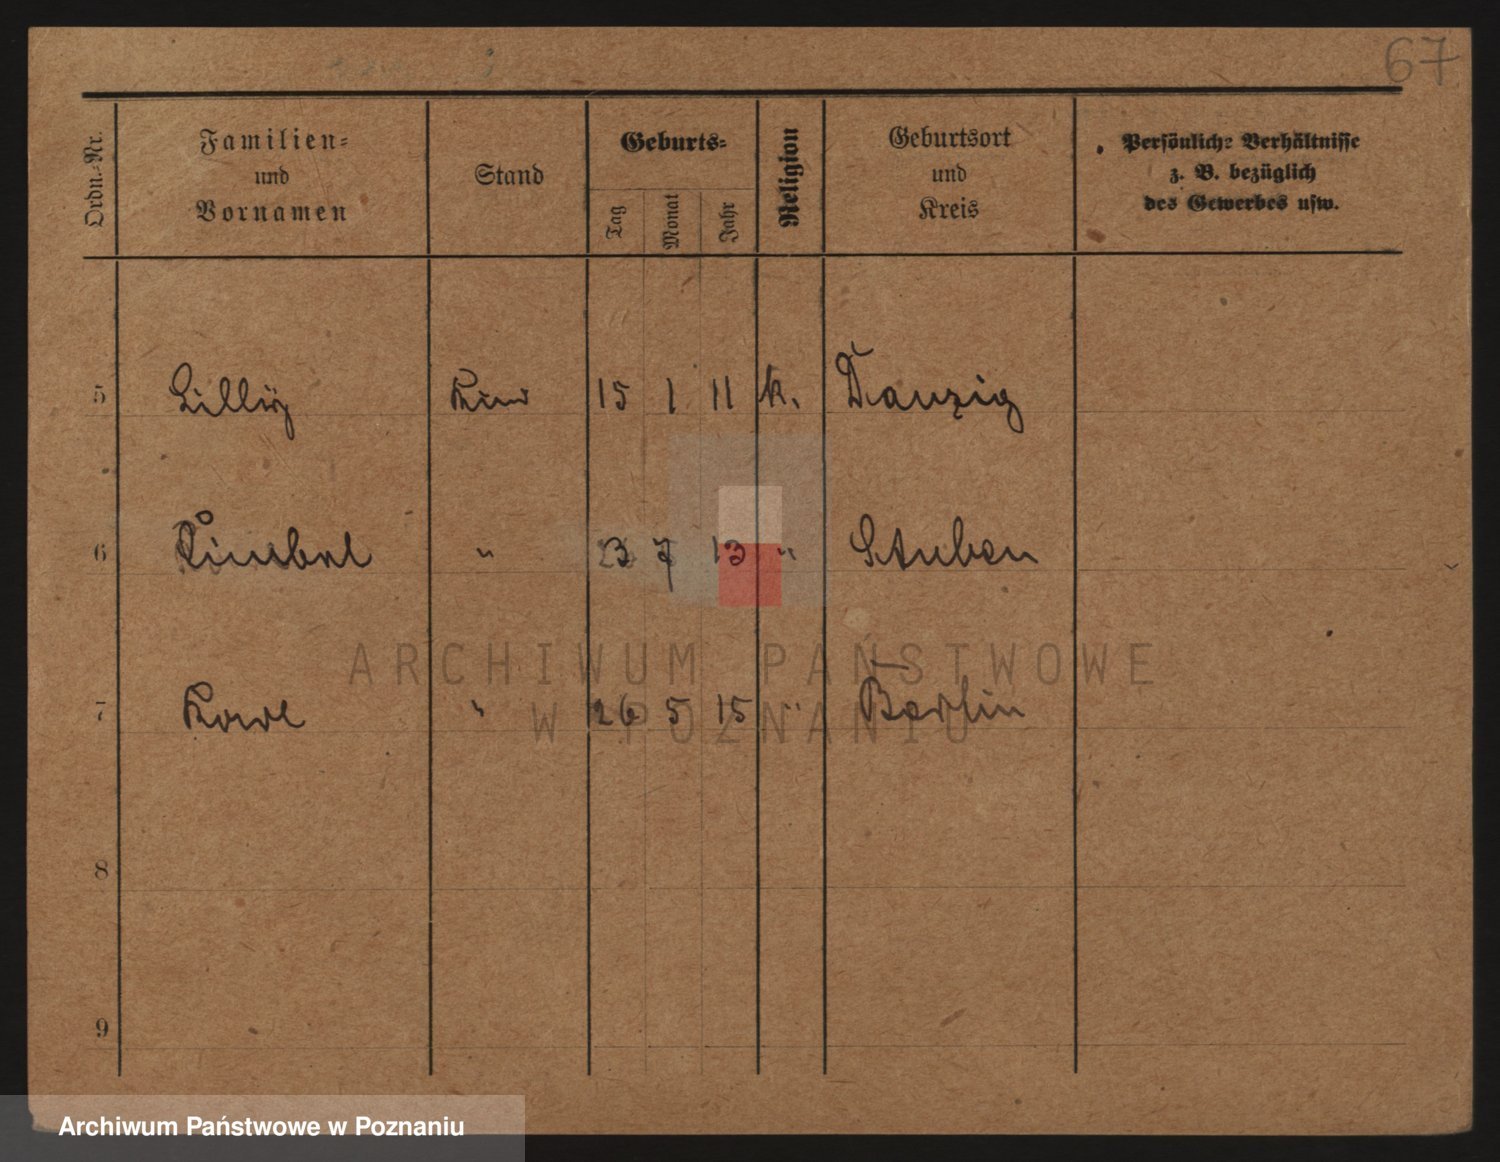 67
Ordn.-Nr.
Familien-
und
Vornamen
Stand
Geburts-
Tag
Monat
Jahr
Religion
Geburtsort
und
Kreis
Persönliche Verhältnisse
z. B. bezüglich
des Gewerbes usw.
5 Lilly Kind 15 1 11 k. Danzig
6 " 23 7 13 " Stuben
7 Karl " 26 5 15 " Berlin
8
9
ARCHIWUM PAŃSTWOWE
W POZNANIU
Archiwum Państwowe w Poznaniu